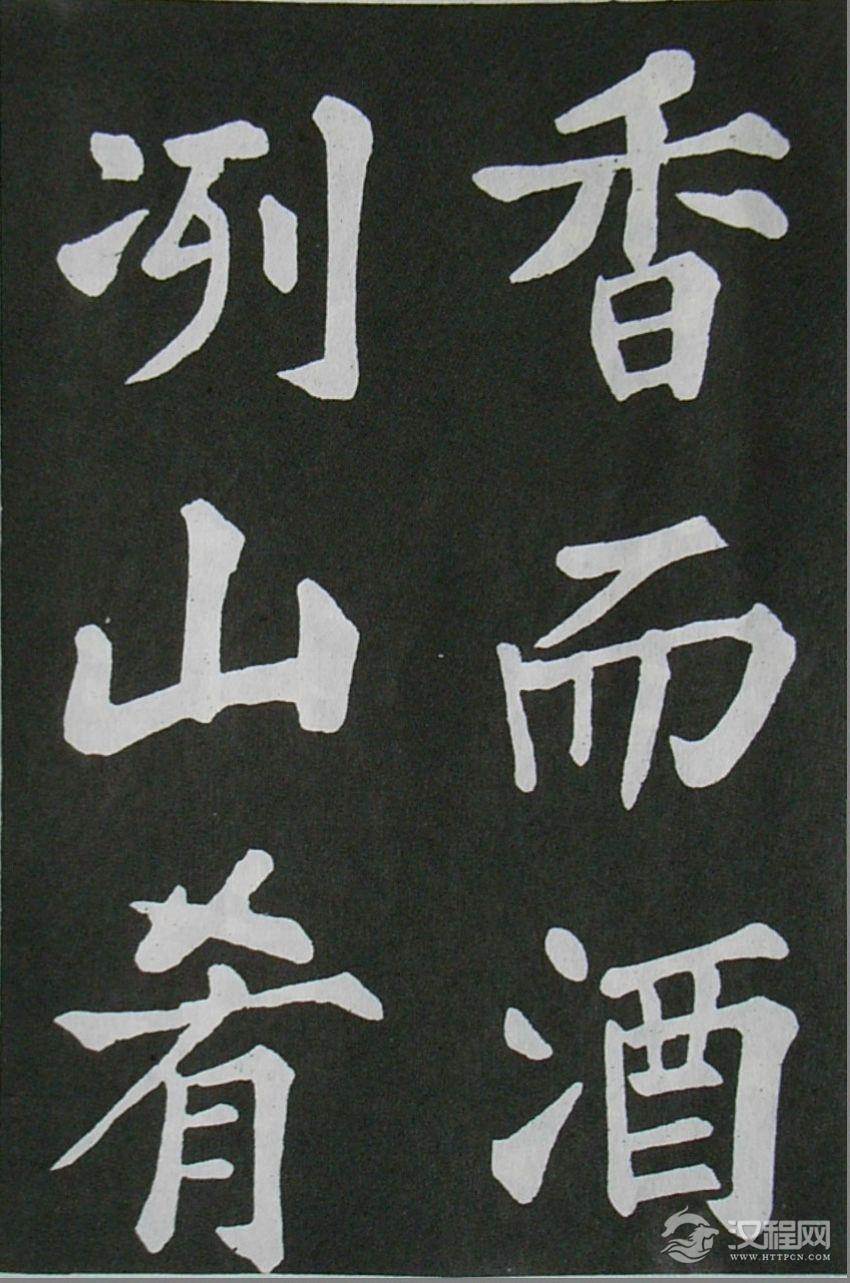 香而酒
冽山肴
汉程网
WWW.HTTPCN.COM